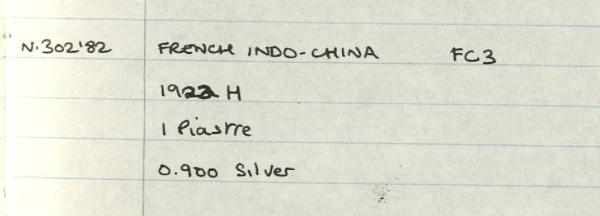 N.302'82 FRENCH INDO-CHINA FC3
1922 H
1 Piastre
0.900 Silver